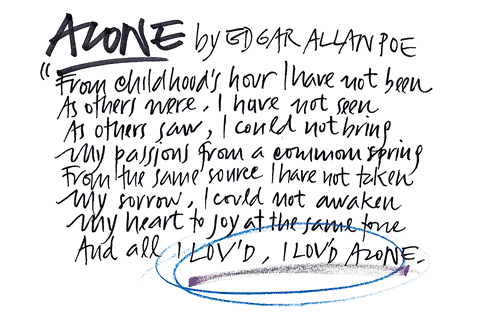 ALONE by EDGAR ALLAN POE
"From childhood's hour I have not been
As others were, I have not seen
As others saw, I could not bring
My passions from a common spring
From the same source I have not taken
My sorrow, I could not awaken
My heart to joy at the same tone
And all I LOV'D, I LOV'D ALONE.